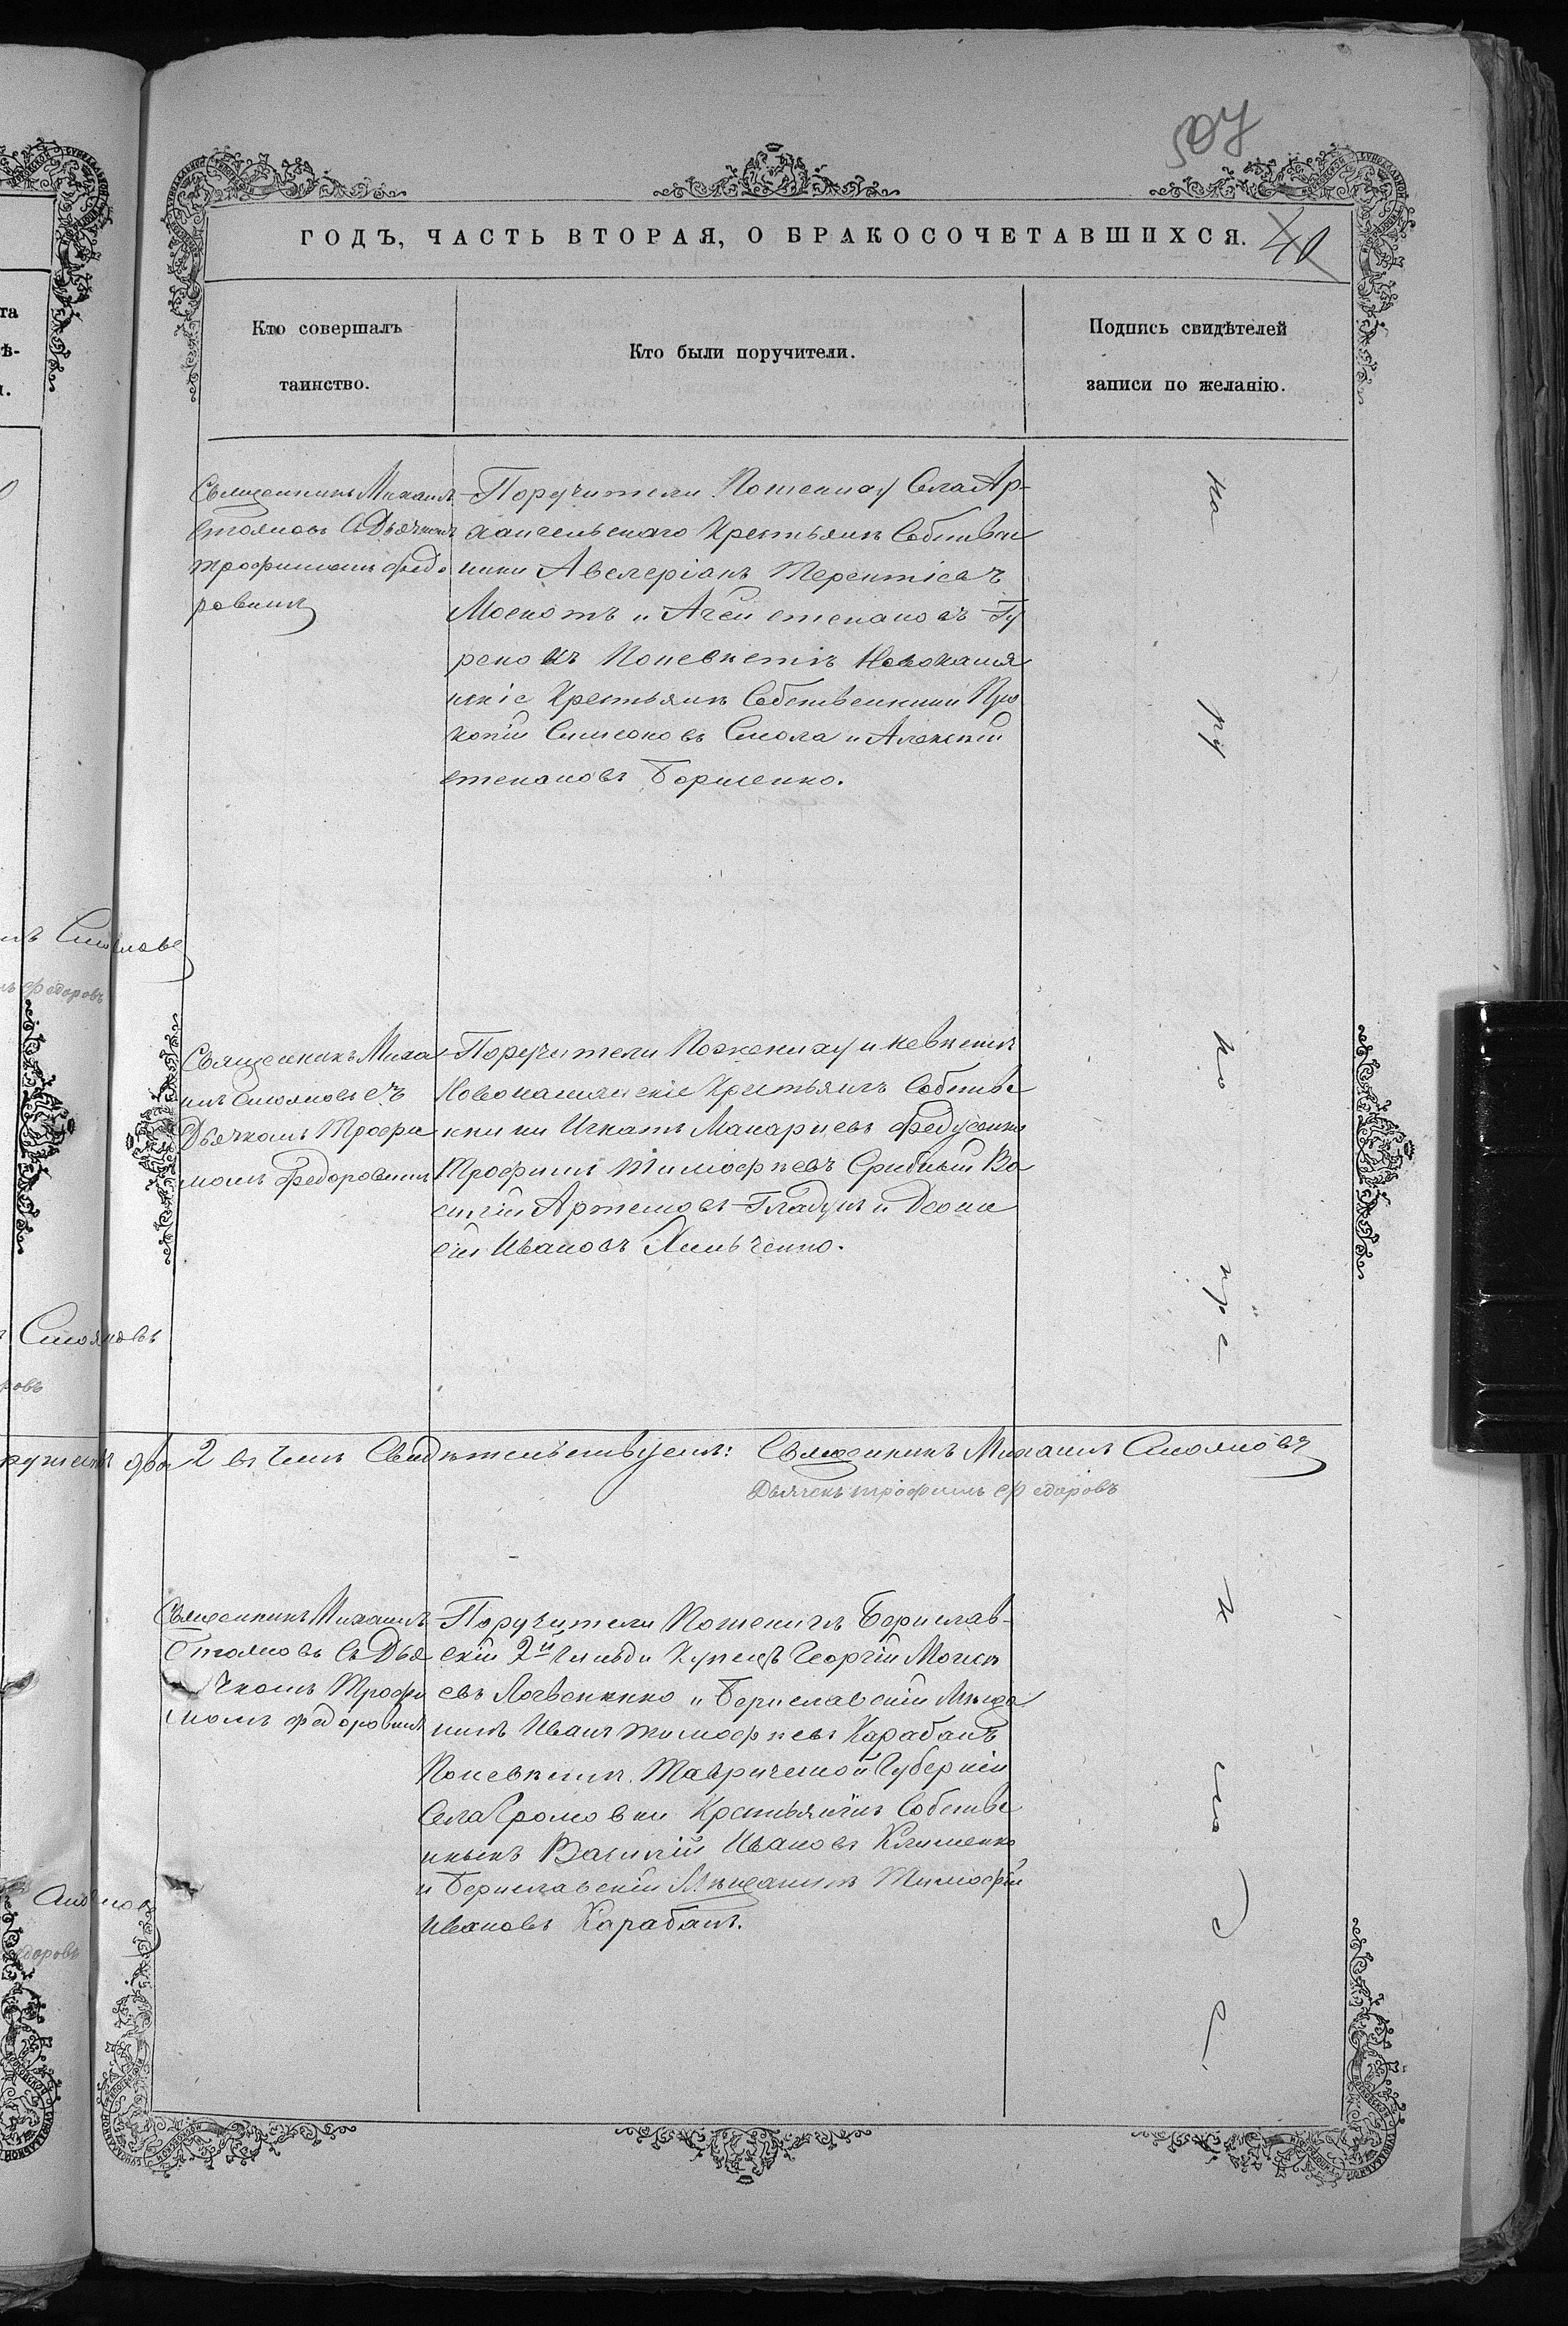 507
ГОДЪ, ЧАСТЬ ВТОРАЯ, О БРАКОСОЧЕТАВШИХСЯ.
40
Кто совершалъ
таинство.
Кто были поручители.
Подпись свидѣтелей
записи по желанію.
Священникъ Михаилъ
Стояновъ съ Дьячкомъ
Трофимомъ Федо
ровымъ
Поручители По жениху Села Ар-
хангельскаго Крестьянъ Собствен
ники Авелеріанъ Терентіевъ
Москотъ и Агей степановъ
По невѣстѣ Новокаменя
нскіе Крестьянъ Собственники Про
копій Симеоновъ Смола и Алексѣй
степановъ Борисенко.
Священникъ Миха
илъ Стояновъ съ
Дьячкомъ Трофи
момъ Федоровымъ
Поручители По жениху и невѣстѣ
Новокаменскіе Крестьянъ Собстве
нники Игнатъ Макаріевъ Федусенко
Трофимъ Тимофѣевъ Срибный Ва
силій Артемовъ Гладунъ и
Ивановъ Хильченко.
два 2 въ чемъ Свидѣтельствуемъ: Священникъ Михаилъ Стояновъ
Дьячекъ трофимъ Федоровъ
Священникъ Михаилъ
Стояновъ съ Дья
чкомъ Трофи
момъ Федоровымъ
Поручители По женихѣ Берислав-
скій 2й Гильди Купецъ Георгій Моисе
евъ Логвененко и Бериславскій Мѣща
нинъ Иванъ Тимофѣевъ Карабанъ
По невѣстѣ Таврической Губерніи
Села Громовки Крестьянинъ Собстве
нникъ Василій Ивановъ Клименко
и Бериславскій Мѣщанинъ Тимофѣй
Ивановъ Карабанъ.